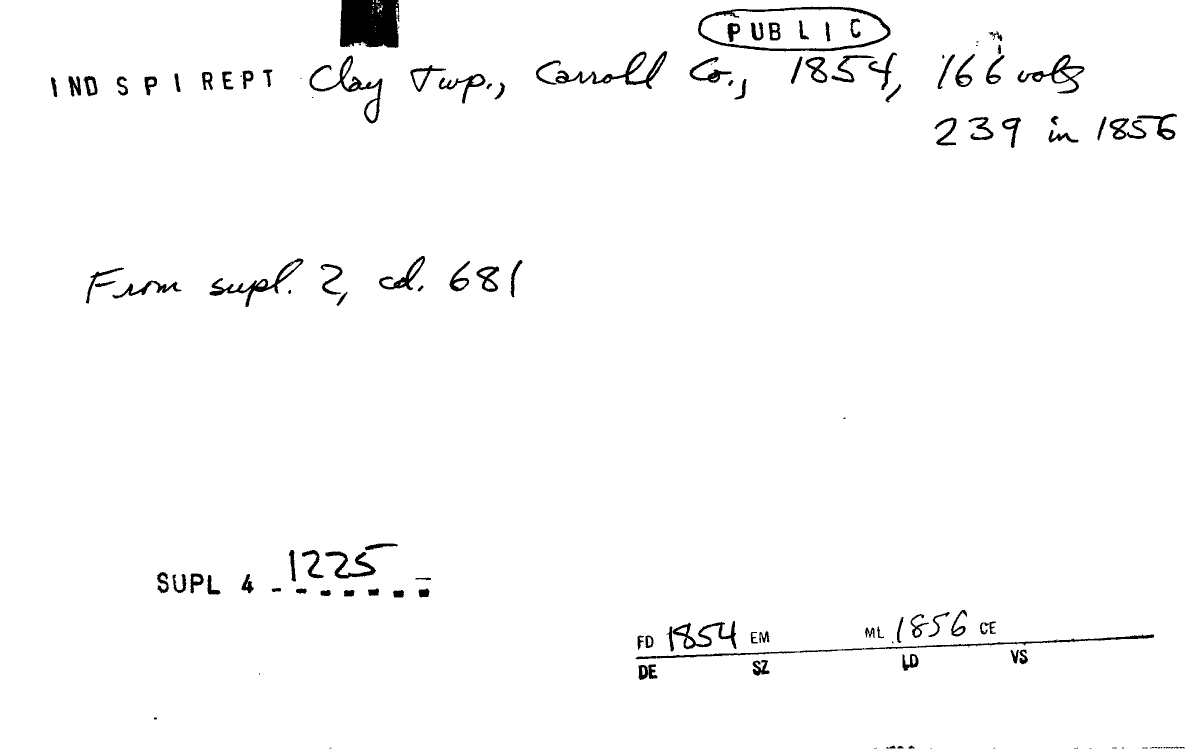 PUBLIC
INDSPIREPT Clay Twp., Carroll Co., 1854, 166 vols
239 in 1856
From supl. 2, cd. 681
SUPL 4 1225
FD 1854 EM ML 1856 CE
DE SZ LD VS